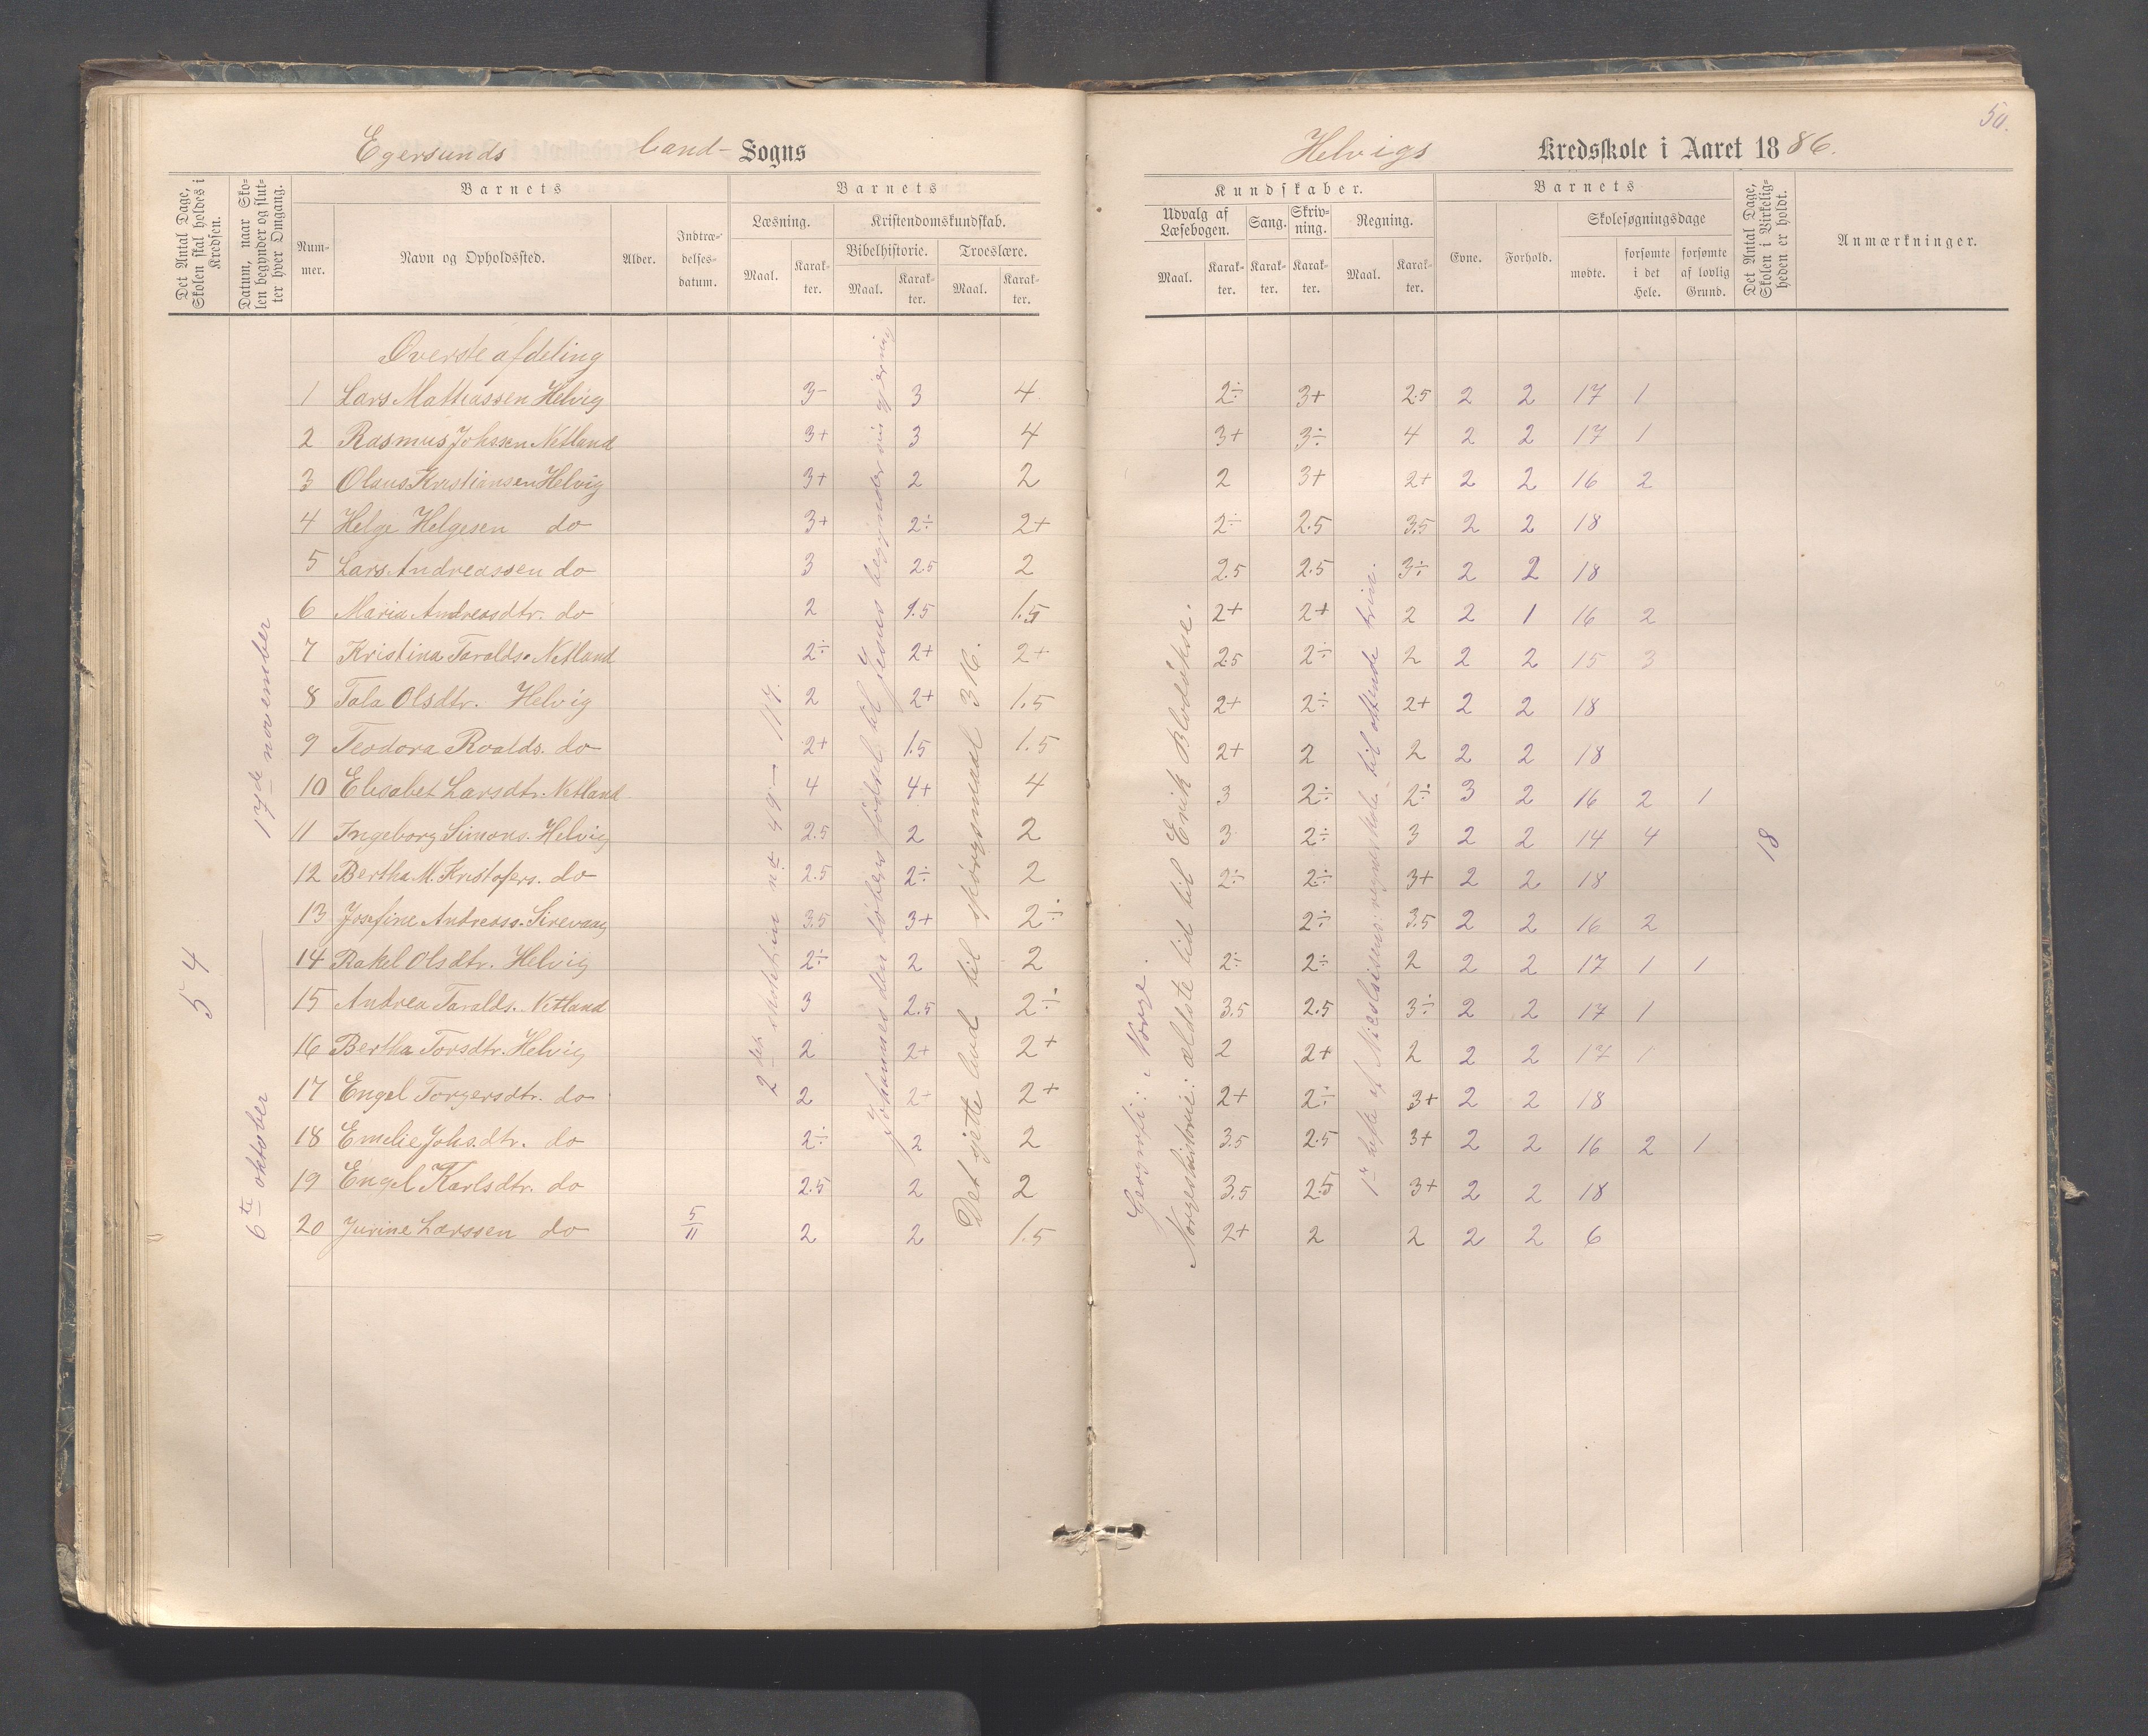 50.
Egersunds Land- Sogns
Helvigs Kredsskole i Aaret 1886.
Det Antal Dage, Skolen skal holdes i Kredsen.
Datum, naar Skolen begynder og slutter hver Omgang.
Barnets
Nummer.
Navn og Opholdssted.
Alder.
Indtrædelsesdatum.
Barnets
Læsning.
Maal.
Karakter.
Kristendomskundskab.
Bibelhistorie.
Maal.
Karakter.
Troeslære.
Maal.
Karakter.
Kundskaber.
Udvalg af Læsebogen.
Maal.
Karakter.
Sang.
Karakter.
Skrivning.
Karakter.
Regning.
Maal.
Karakter.
Barnets
Evne.
Forhold.
Skolesøgningsdage
mødte.
forsømte i det Hele.
forsømte af lovlig Grund.
Det Antal Dage, Skolen i Virkeligheden er holdt.
Anmærkninger.
Øverste afdeling
1 Lars Mathiassen Helvig 3- 3 4 2÷ 3+ 2.5 2 2 17 1
2 Rasmus Johssen Netland 3+ 3 4 3+ 3÷ 4 2 2 17 1
3 Olaus Kristiansen Helvig 3+ 2 2 2 3+ 2+ 2 2 16 2
4 Helge Helgesen do 3+ 2÷ 2+ 2÷ 2.5 3.5 2 2 18
5 Lars Andreassen do 3 2.5 2 2.5 2.5 3÷ 2 2 18
6 Maria Andreasdtr. do 2 1.5 1.5 2+ 2+ 2 2 1 16 2
7 Kristina Taralds. Netland 2÷ 2+ 2+ 2.5 2÷ 2 2 2 15 3
8 Tala Olsdtr. Helvig 2 2+ 1.5 2+ 2÷ 2+ 2 2 18
9 Teodora Roalds. do 2+ 1.5 1.5 2+ 2 2 2 2 18
10 Elisabet Larsdtr. Netland 4 4+ 4 3 2÷ 2÷ 3 2 16 2 1
11 Ingeborg Simons. Helvig 2.5 2 2 3 2÷ 3 2 2 14 4
12 Bertha M. Kristofers. do 2.5 2÷ 2 2÷ 2÷ 3+ 2 2 18
13 Josefine Andreass. Sirevaag 3.5 3+ 2÷ 2÷ 3.5 2 2 16 2
14 Rakel Olsdtr. Helvig 2÷ 2 2 2÷ 2÷ 2 2 2 17 1 1
15 Andrea Taralds. Netland 3 2.5 2÷ 3.5 2.5 3÷ 2 2 17 1
16 Bertha Torsdtr. Helvig 2 2+ 2+ 2 2+ 2 2 2 17 1
17 Engel Torgersdtr. do 2 2+ 2+ 2+ 2÷ 3+ 2 2 18
18 Emelie Johs.dtr. do 2÷ 2 2 3.5 2.5 3+ 2 2 16 2 1
19 Engel Karlsdtr. do 2.5 2 2 3.5 2.5 3+ 2 2 18
20 Jurine Larssen do 5/11 2 2 1.5 2+ 2 2 2 2 6
54
6te oktober — 17de november
2det skoletrin nr 49 — 117.
Johannes den døbers fødsel til Jesus begynder sin gjerning
Det sjette bud til spørgsmaal 316.
Geografi: Norge.
Norgeshistorie: ældste tid til Erik Blodøkse.
1ste hefte af Nicolaisens regneskole til ottende trin.
18